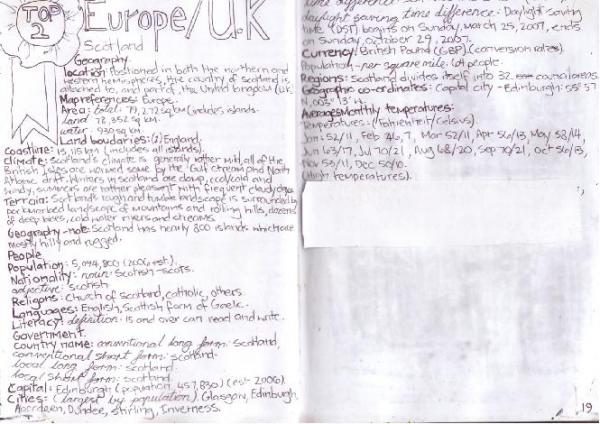 TOP
2
Europe/UK
Scotland
Geography
location: positioned in both the northern and
western hemispheres, the country of scotland is
attached to, and part of, the United kingdom (UK).
Map references: Europe.
Area: total: 79,272 sq km (includes islands.
land 78,352 sq km
water: 930 sq km.
Land boundaries: (1) England.
Coastline: 15,115 km (includes all islands).
Climate: Scotland's climate is generally rather mild, all of the
British Isles are warmed some by the Gulf stream and North
Atlantic drift. Winters in scotland are damp, cool/cold and
windy, summers are rather pleasant with frequent cloudy days.
Terrain: Scotland's rough and tumble landscape is surrounded by
landscape of mountains and rolling hills, dozens
of deep cold water rivers and streams.
Geography-note: Scotland has nearly 800 islands which are
mostly hilly and rugged.
People
Population: 5,094,800 (2006 est).
Nationality: noun: Scotish-scots.
adjective: scotish
Religions: Church of scotland, catholic, others
Languages: English, Scottish form of Gaelic.
Literacy: definition: 15 and over can read and write.
Government
country name: conventional long form: scotland,
conventional short form: scotland.
local long form: scotland.
local short form: scotland.
Capital: Edinburgh (population, 457,830) (est- 2006).
Cities: (largest by population). Glasgow, Edinburgh,
Aberdeen, Dundee, Stirling, Inverness.
daylight saving time difference: Daylight saving
time (DST) begins on Sunday, march 25, 2007, ends
on Sunday october 29, 2007.
Currency: British Pound (GBP). (conversion rates).
Population-per square mile: 168 people.
Regions: Scotland divides itself into 32 council areas.
Geographic co-ordinates: Capital city - Edinburgh: 55° 57'
N, 003° 13' W.
Average Monthly temperatures:
Temperatures: (Fahrenheit/Celsius)
Jan: 52/11, Feb 7, Mar 52/11, Apr 56/13, May 58/14,
Jun 63/17, Jul 70/21, Aug 68/20, Sep 70/21, Oct 56/13,
Nov 53/11, Dec 50/10.
(High temperatures).
19